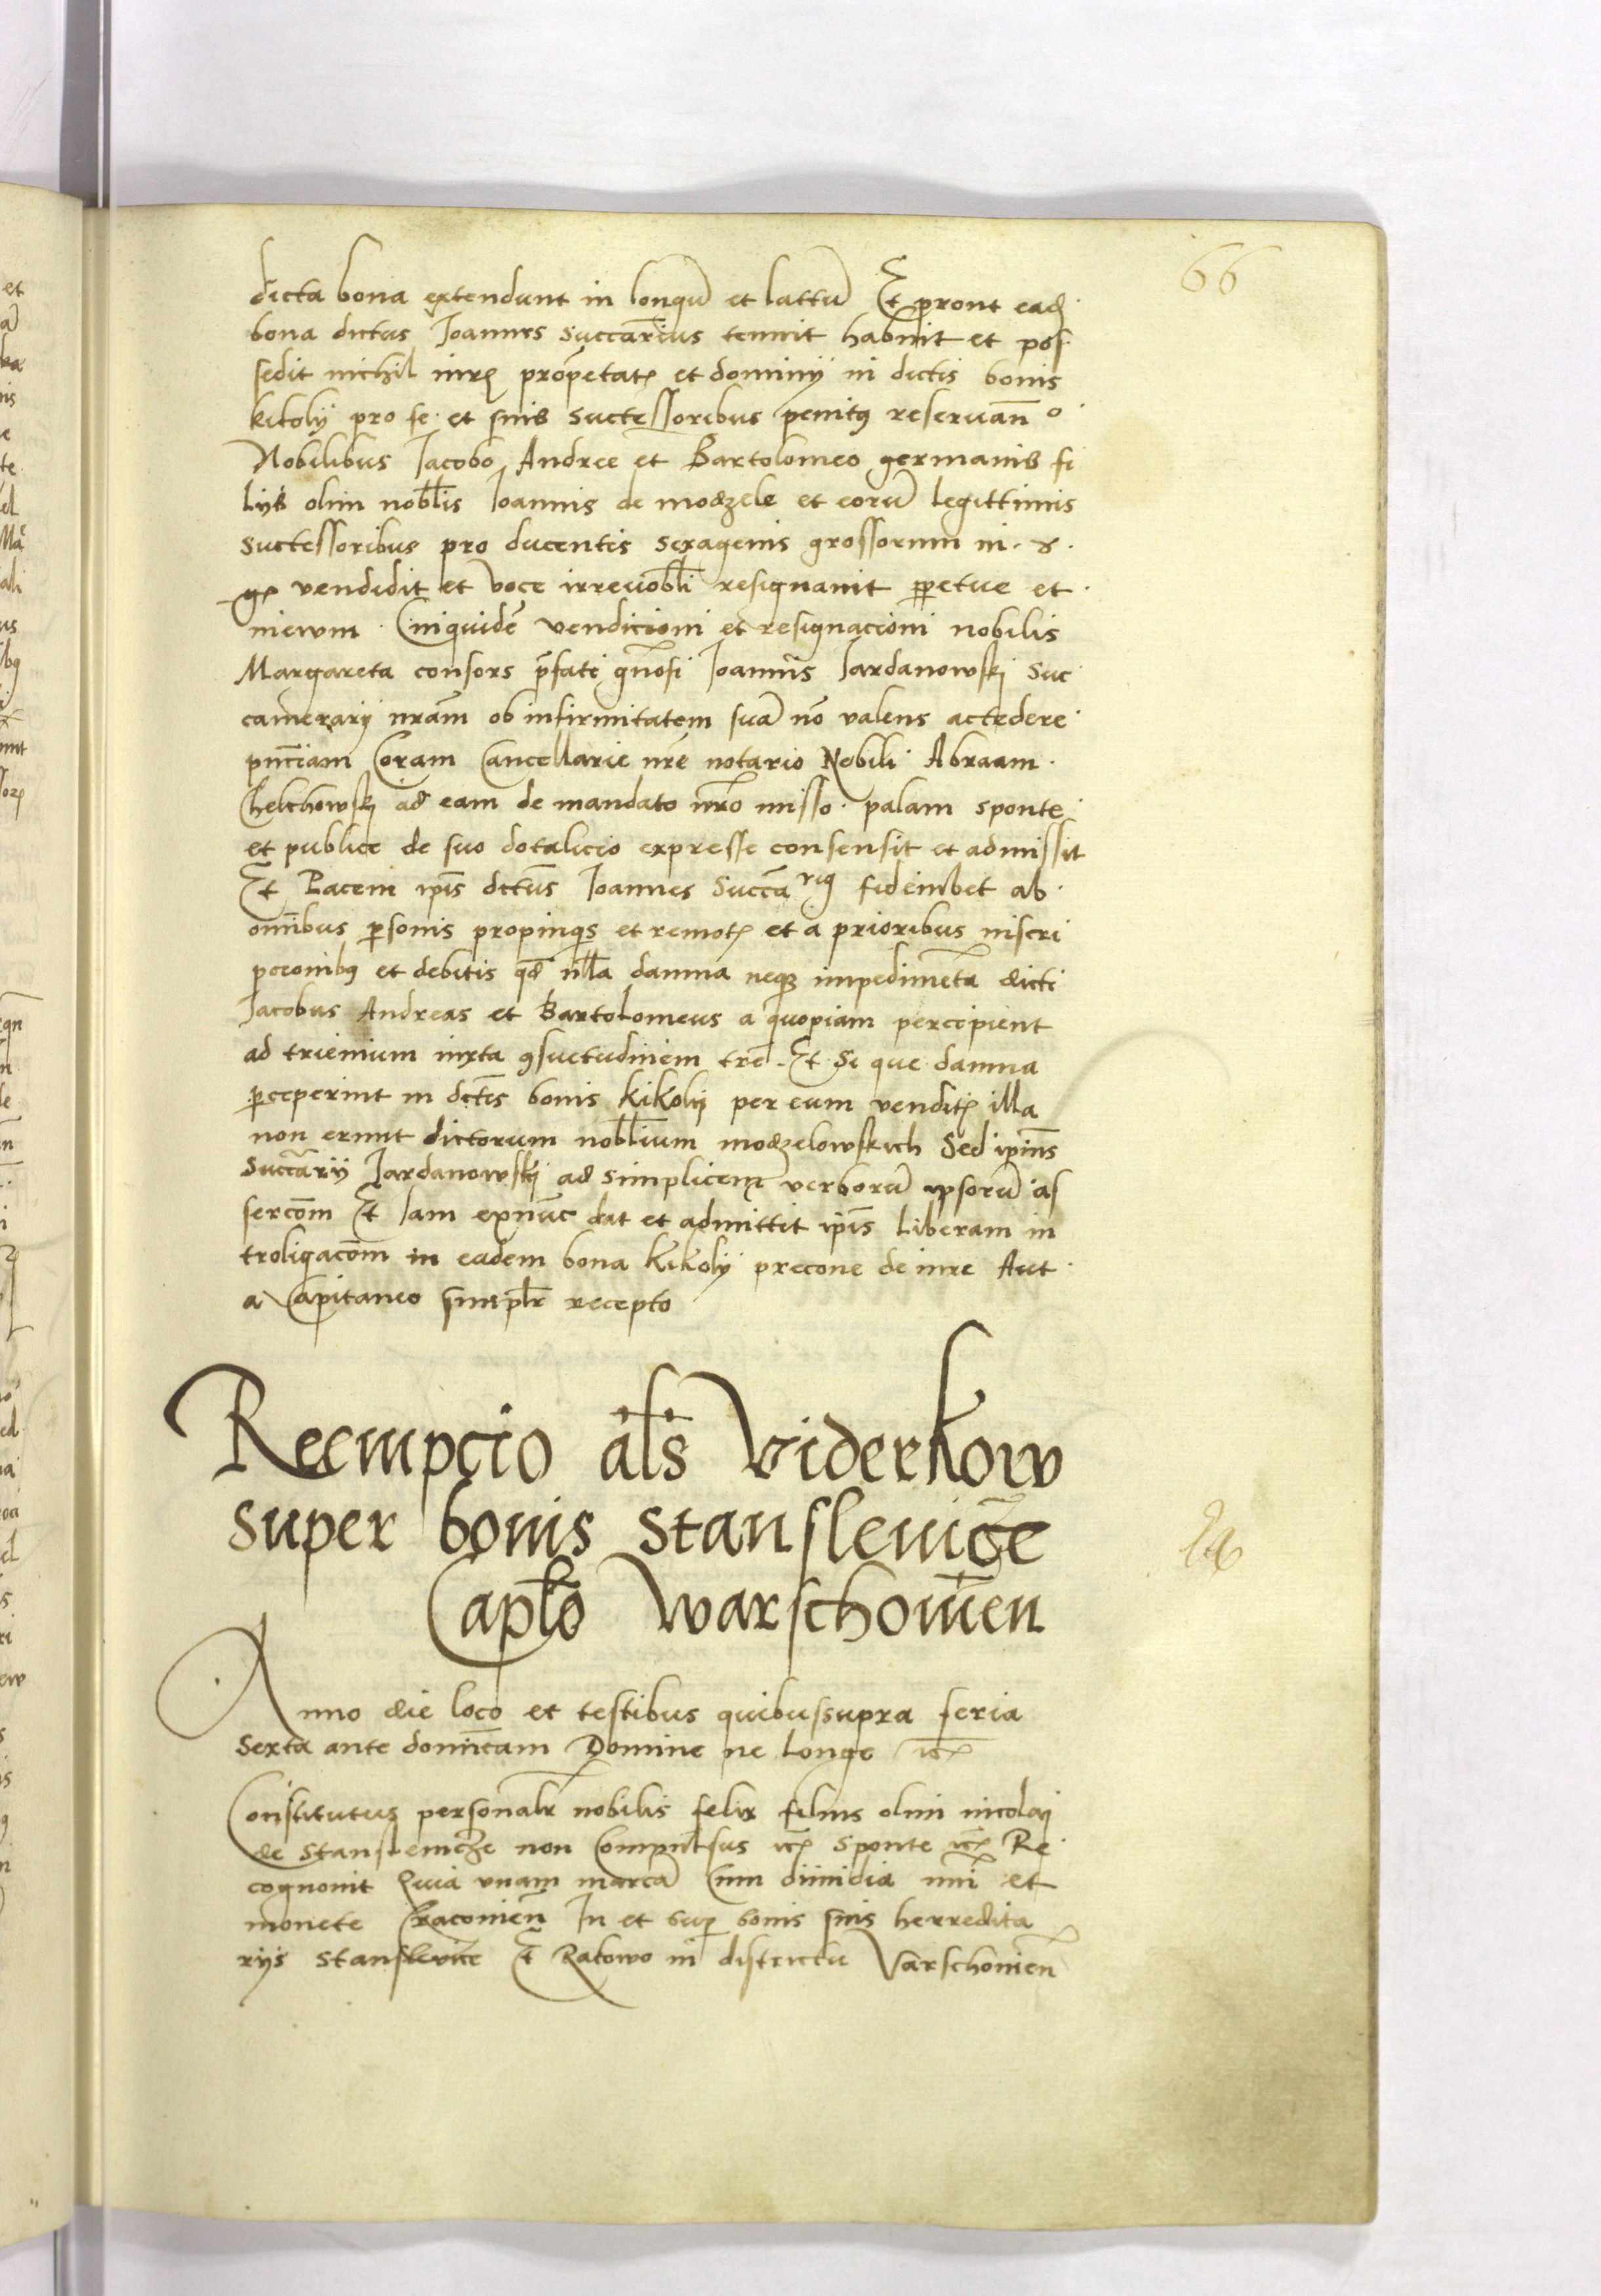 66
dicta bona extendunt in longū et lattū Et prout eaḋ
bona dictus Joannes Succārius tenuit habuit et pos
sedit nichil iuris propetatis et dominij in dictis bonis
kikolij pro se et suis Successoribus penitus reservan̄
Nobilibus Jacobo Andree et Bartolomeo germanis fi
lijs olim nobl̄is Joannis de modzele et eorū legittimis
Successoribus pro ducentis sexagenis grossorum in
vendidit et voce irreuobl̄i resignauit ꝑpetue et
in ewm Cuiquidē vendicioni et resignacioni nobilis
Margareta consors p̄fati gn̄osi Joannis Jardanowskj Suc
camerarij nrām ob infirmitatem suā nō valens accedere
pn̄ciam Coram Cancellarie nrē notario Nobili Abraam
Chelchowskj ad eam de mandato nr̄o misso palam sponte
et publice de suo dotalicio expresse consensit et admissit
Et Pacem ip̄is dctūs Joannes Succāriꝯ fideiubet ab
omībus ꝑsonis propinquis et remotis et a prioribus inscri
pcionibꝯ et debitis qđ nlla damna neqꝫ impedimēta dicti
Jacobus Andreas et Bartolomeus a quopiam percipient
ad trienium iuxta ꝯsuetudinem trē Et Si que damna
ꝑceperint in dctīs bonis kikolij per eum venditis illa
non erunt dictorum nobl̄ium modzelowskich Sed ipiūs
Succārij Jardanowskj ad simplicem verborū ipsorū as
sercōm Et Jam exnūc dat et admittit ip̄is liberam in
troligacōm in eadem bona kikolij precone de iure Aut
a Capitaneo simplr̄ recepto
Reempcio al̄s Viderkow
super bonis Stanslewicze
Capl̄o Warschowīen
Anno die loco et testibus quibussupra feria
Sexta ante domīcam Domine ne longe
Constitutus personalr̄ nobilis felix filius olim nicolaj
de Stanslewicze non Compulsus sponte Re
cognouit Quia vnam marcā Cum dimidia nūi et
monete Cracouien̄ In et suꝑ bonis suis herredita
rijs Stanslewice Et Rakowo in districtu Varschouien̄